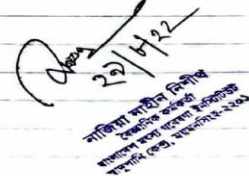 ২১/৮/২২
নাজিয়া মাহীন নিশীথ
বৈজ্ঞানিক কর্মকর্তা
বাংলাদেশ মৎস্য গবেষণা ইনস্টিটিউট
স্বাদুপানি কেন্দ্র, ময়মনসিংহ-২২০১